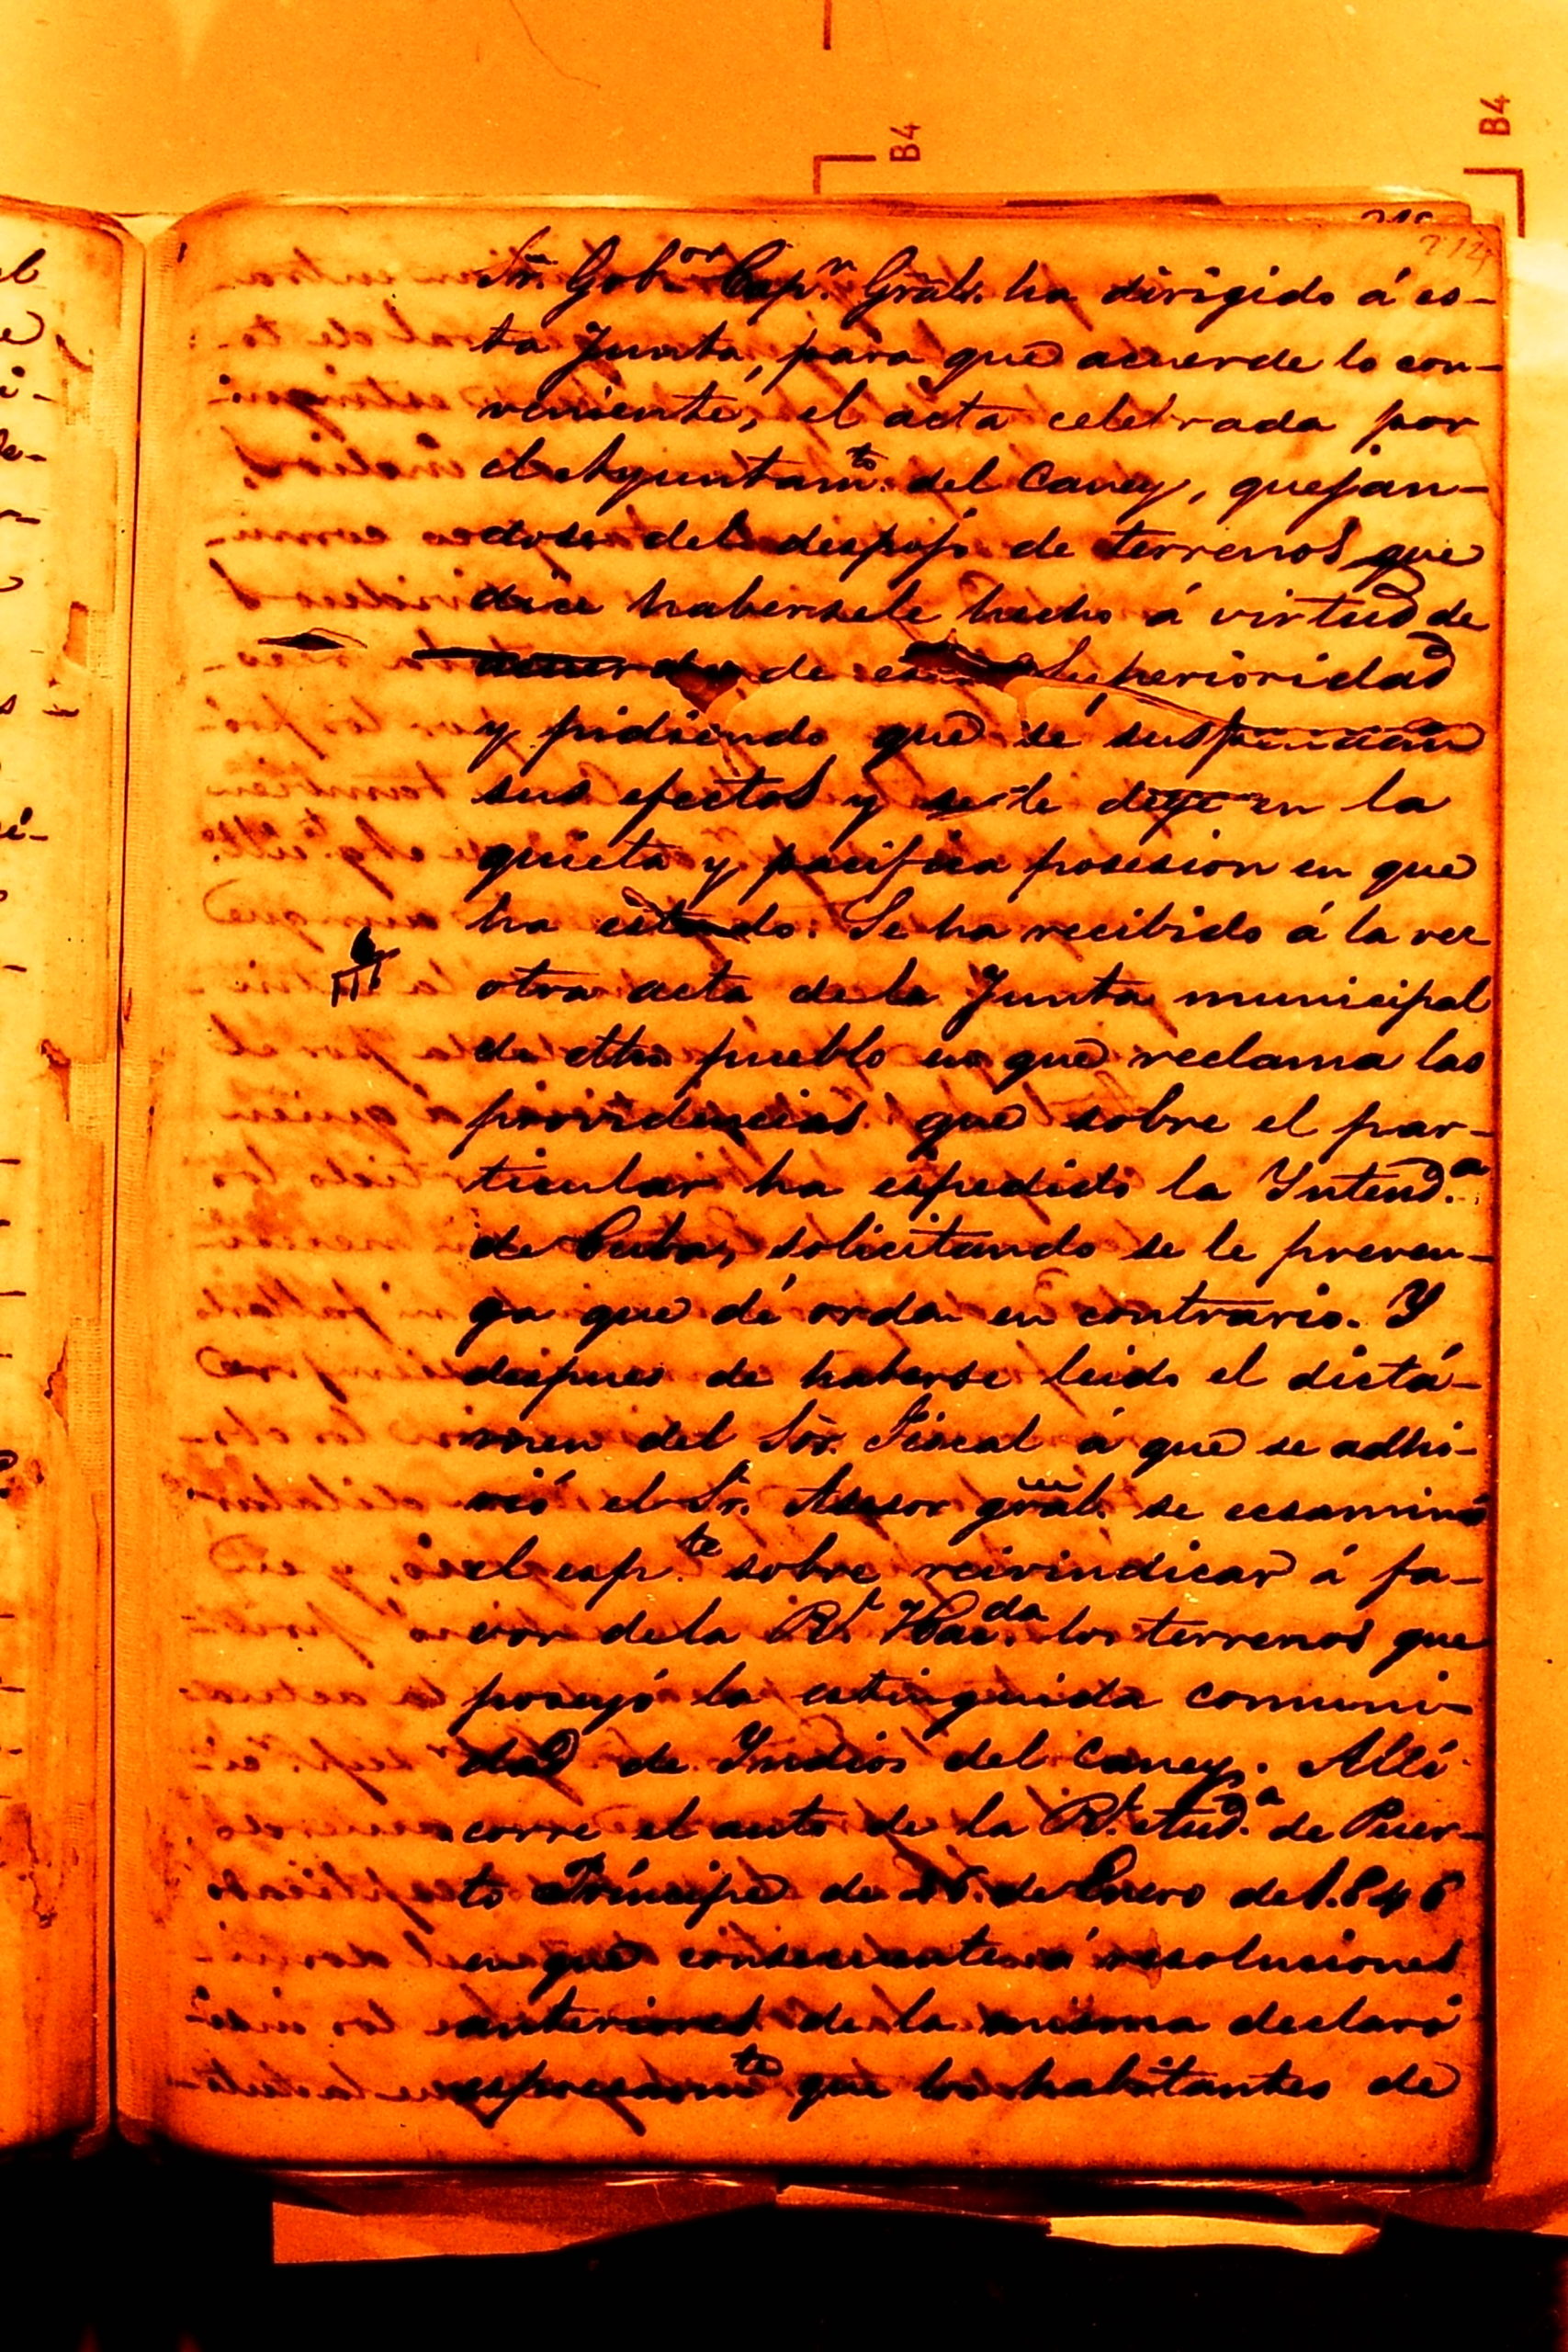 B4
B4
214
Sr. Gob.or Cap.n Gral. ha dirigido á es-
ta Junta, para que acuerde lo con-
veniente, el acta celebrada por
el Ayuntam.to del Caney, quejan-
dose del despojo de terrenos que
dice habersele hecho á virtud de
acuerdo de esta Superioridad
y pidiendo que se suspendan
sus efectos y se le deje en la
quieta y pacifica posesion en que
ha estado. Se ha recibido á la vez
otra acta de la Junta municipal
de dho pueblo en que reclama las
providencias que sobre el par-
ticular ha espedido la Intend.a
de Cuba, solicitando se le preven-
ga que dé orden en contrario. Y
despues de haberse leido el dictá-
men del Sor. Fiscal á que se adhi-
rió el Sr. Asesor gral. se ecsaminó
el esp.te sobre reivindicar á fa-
vor de la R.l Hac.da los terrenos que
poseyó la estinguida comuni-
dad de Indios del Caney. Allí
corre el auto de la R.l Aud.a de Puer-
to Príncipe de de Enero de 1.846
en que consecuente á resoluciones
anteriores de la misma declaró
espresam.te que los habitantes de